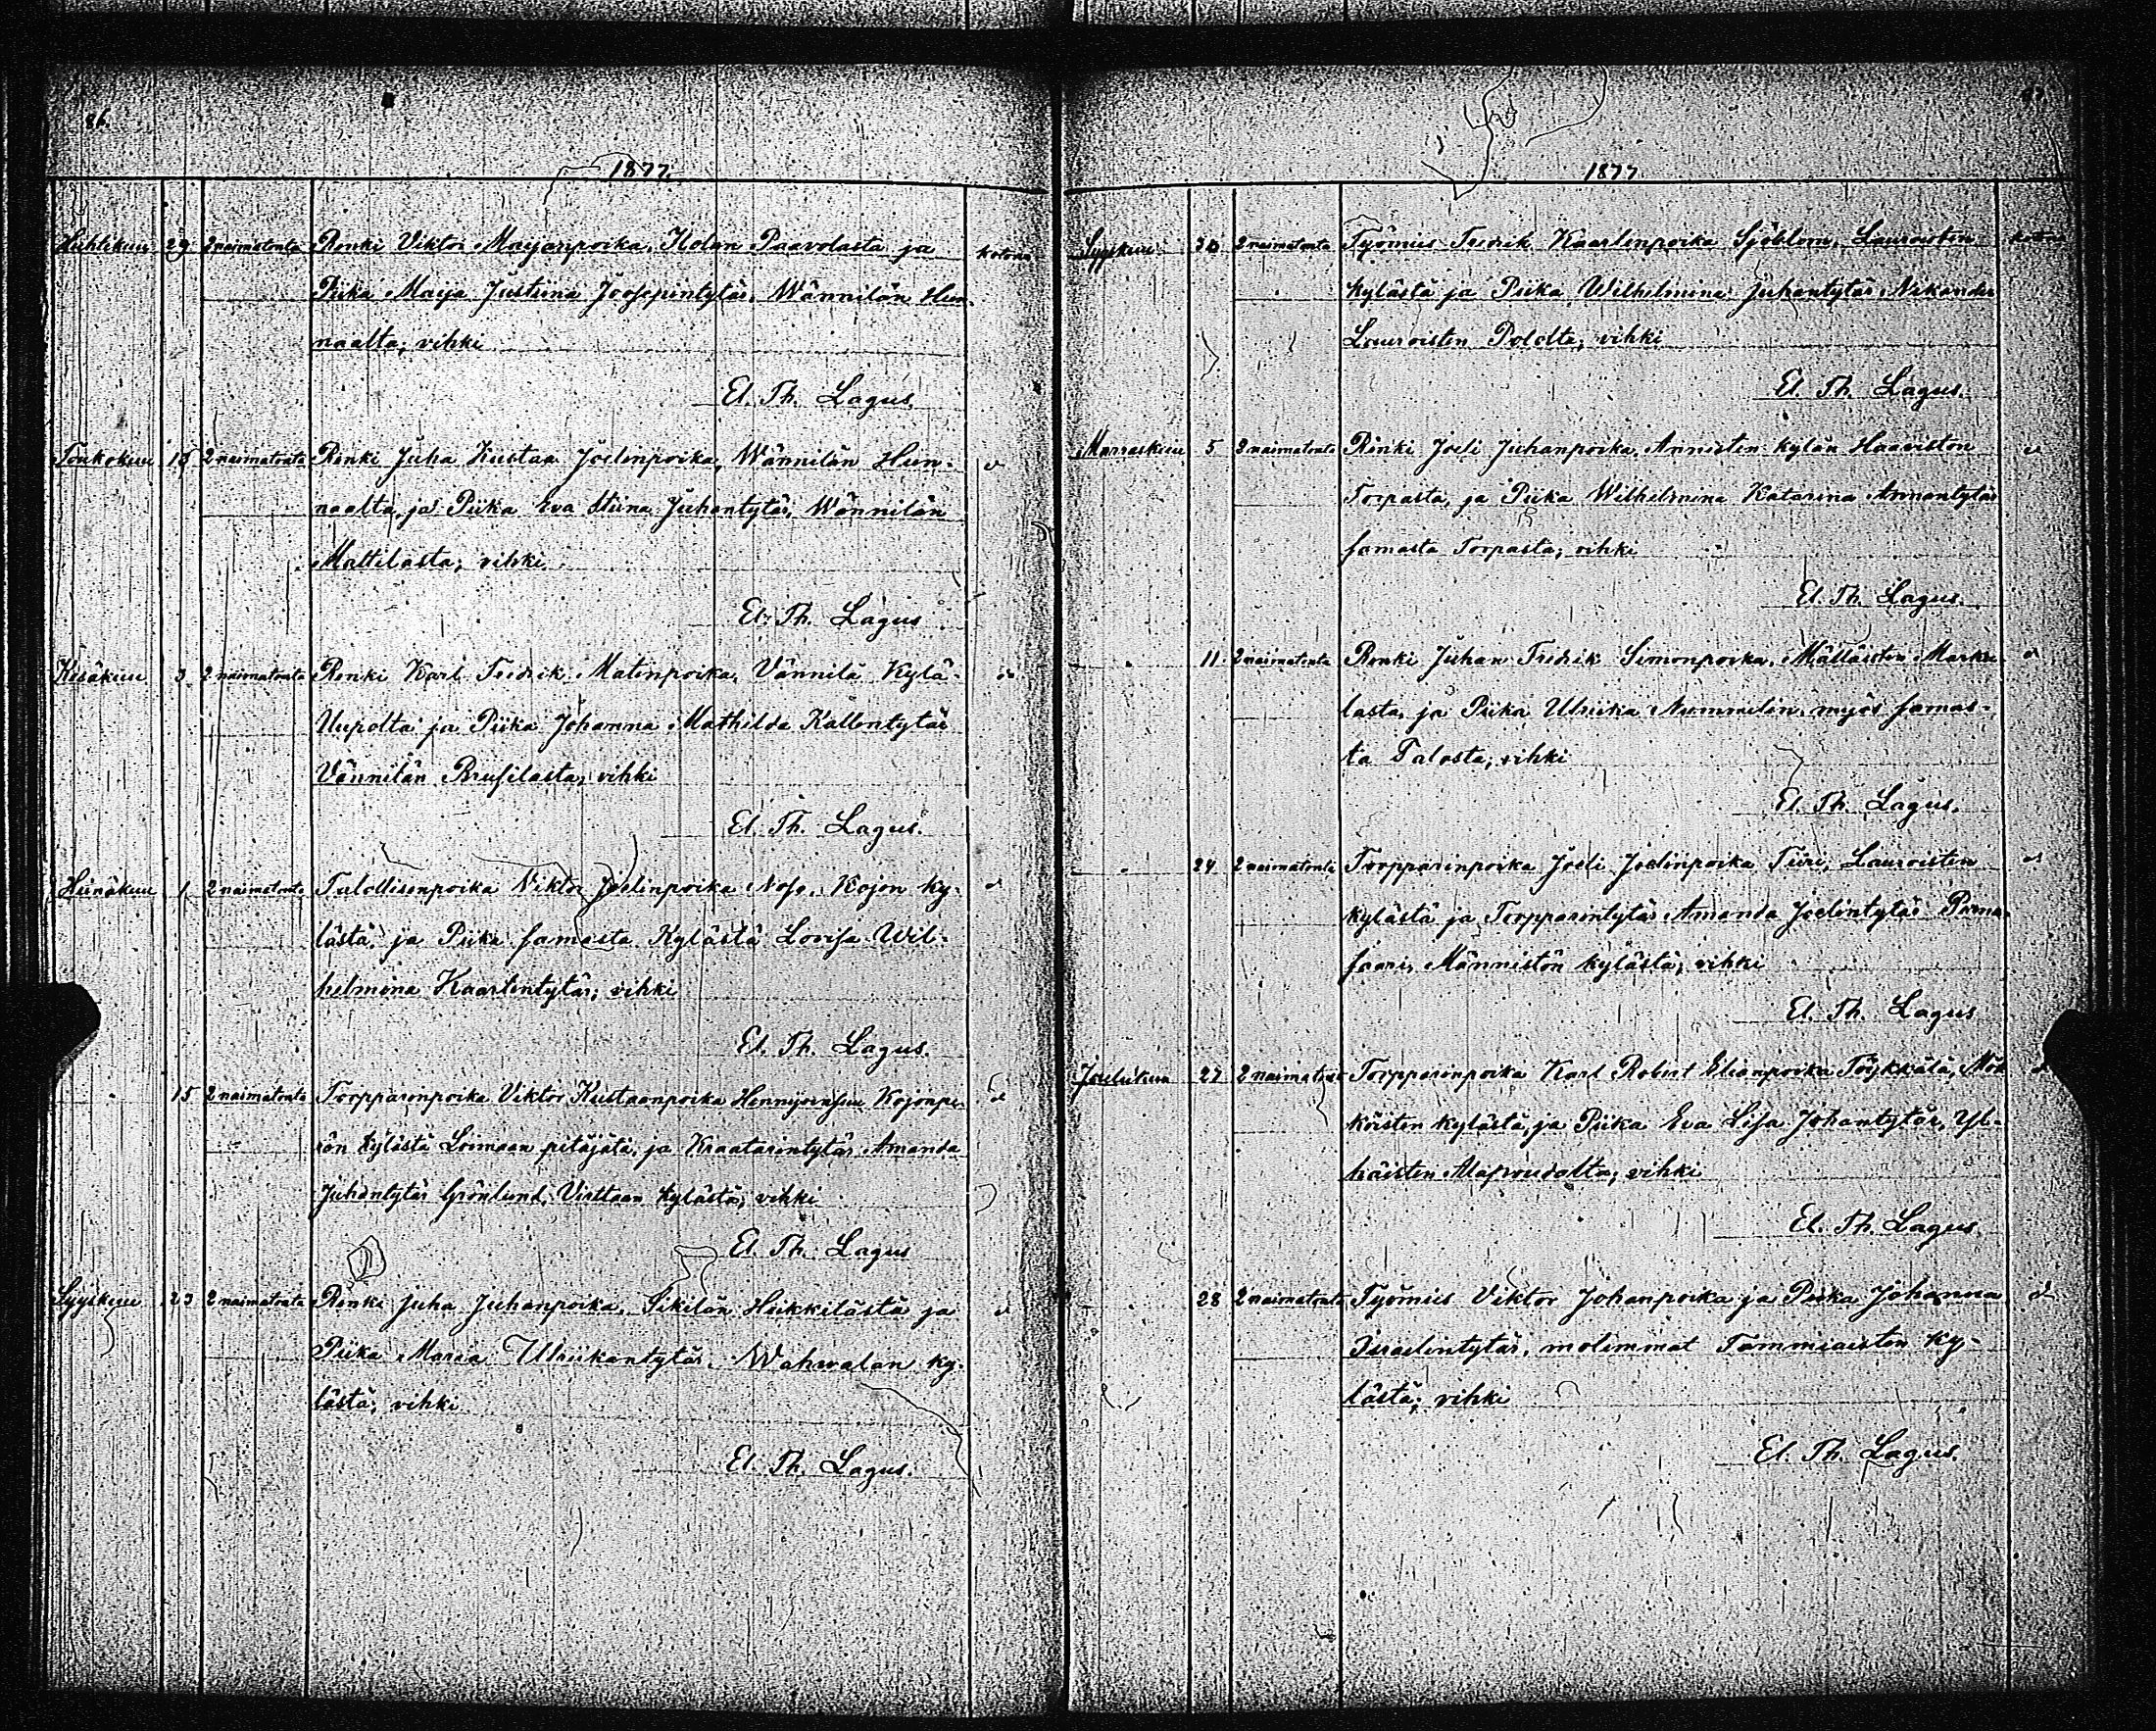 86.
1877.
Huhtikuu 29 2 naimatonta Renki Viktor Maijanpoika, Kolan Paavolasta ja kotona
Piika Maija Justiina Joosepintytär, Wännilän Hun-
naalta; vihki
El. Th. Lagus.
Toukokuu 15 2 naimatonta Renki Juha Kustaa Joelinpoika, Wännilän Hun-
naalta, ja Piika Eva Stiina Juhantytär, Wännilän
Mattilasta; vihki
El. Th. Lagus
Kesäkuu 3 2 naimatonta Renki Karl Fredrik Matinpoika, Vännilä Kylä-
Uupolta ja Piika Johanna Mathilda Kallentytär
Vännilän Prusilasta; vihki
El. Th. Lagus.
Heinäkuu 1 2 naimatonta Talollisenpoika Viktor Joelinpoika Noso, Kojon ky-
lästä, ja Piika samasta Kylästä Lovisa Wil-
helmina Kaarlentytär; vihki
El. Th. Lagus.
15 2 naimatonta Torpparinpoika Viktor Kustaanpoika Kojonpe-
rön kylästä Loimaan pitäjätä, ja Kraatarintytär Amanda
Juhantytär Grönlund, Virttaan kylästä; vihki
El. Th. Lagus
Syyskuu 23 2 naimatonta Renki Juha Juhanpoika, Sikilän Heikkilästä ja
Piika Maria Ulriikantytär, Wahvalan ky-
lästä; vihki
El. Th. Lagus.
1877
Syyskuu 30 2 naimatonta Työmies Fredrik Kaarlenpoika Sjöblom, Lauroisten kotona
kylästä ja Piika Wilhelmina Juhantytär Nikander
Lauroisten Pololta; vihki
El. Th. Lagus.
Marraskuu 5 2 naimatonta Renki Joeli Juhanpoika, Annisten kylän Haaviston
Torpasta, ja Piika Wilhelmina Katarina Annantytär
samasta Torpasta; vihki
El. Th. Lagus.
11 2 naimatonta Renki Juhan Fredrik Simonpoika, Mälläisten Marku-
lasta, ja Piika Ulriika Nummelin, myös samas-
ta Talosta; vihki
El. Th. Lagus.
24 2 naimatonta Torpparinpoika Joeli Joelinpoika Tiiri, Lauroisten
kylästä ja Torpparintytär Amanda Joelintytär
Männistön kylästä; vihki
El. Th. Lagus
Joulukuu 27 2 naimatonta Torpparinpoika Karl Robert Elianpoika Töykkälä, Mäk-
köisten kylästä, ja Piika Eva Lisa Johantytär, Yl-
häisten Alaproudalta; vihki
El. Th. Lagus
28 2 naimatonta Työmies Viktor Johanpoika ja Piika Johanna
Israelintytär, molimmat Tammiaisten ky-
lästä; vihki
El. Th. Lagus.